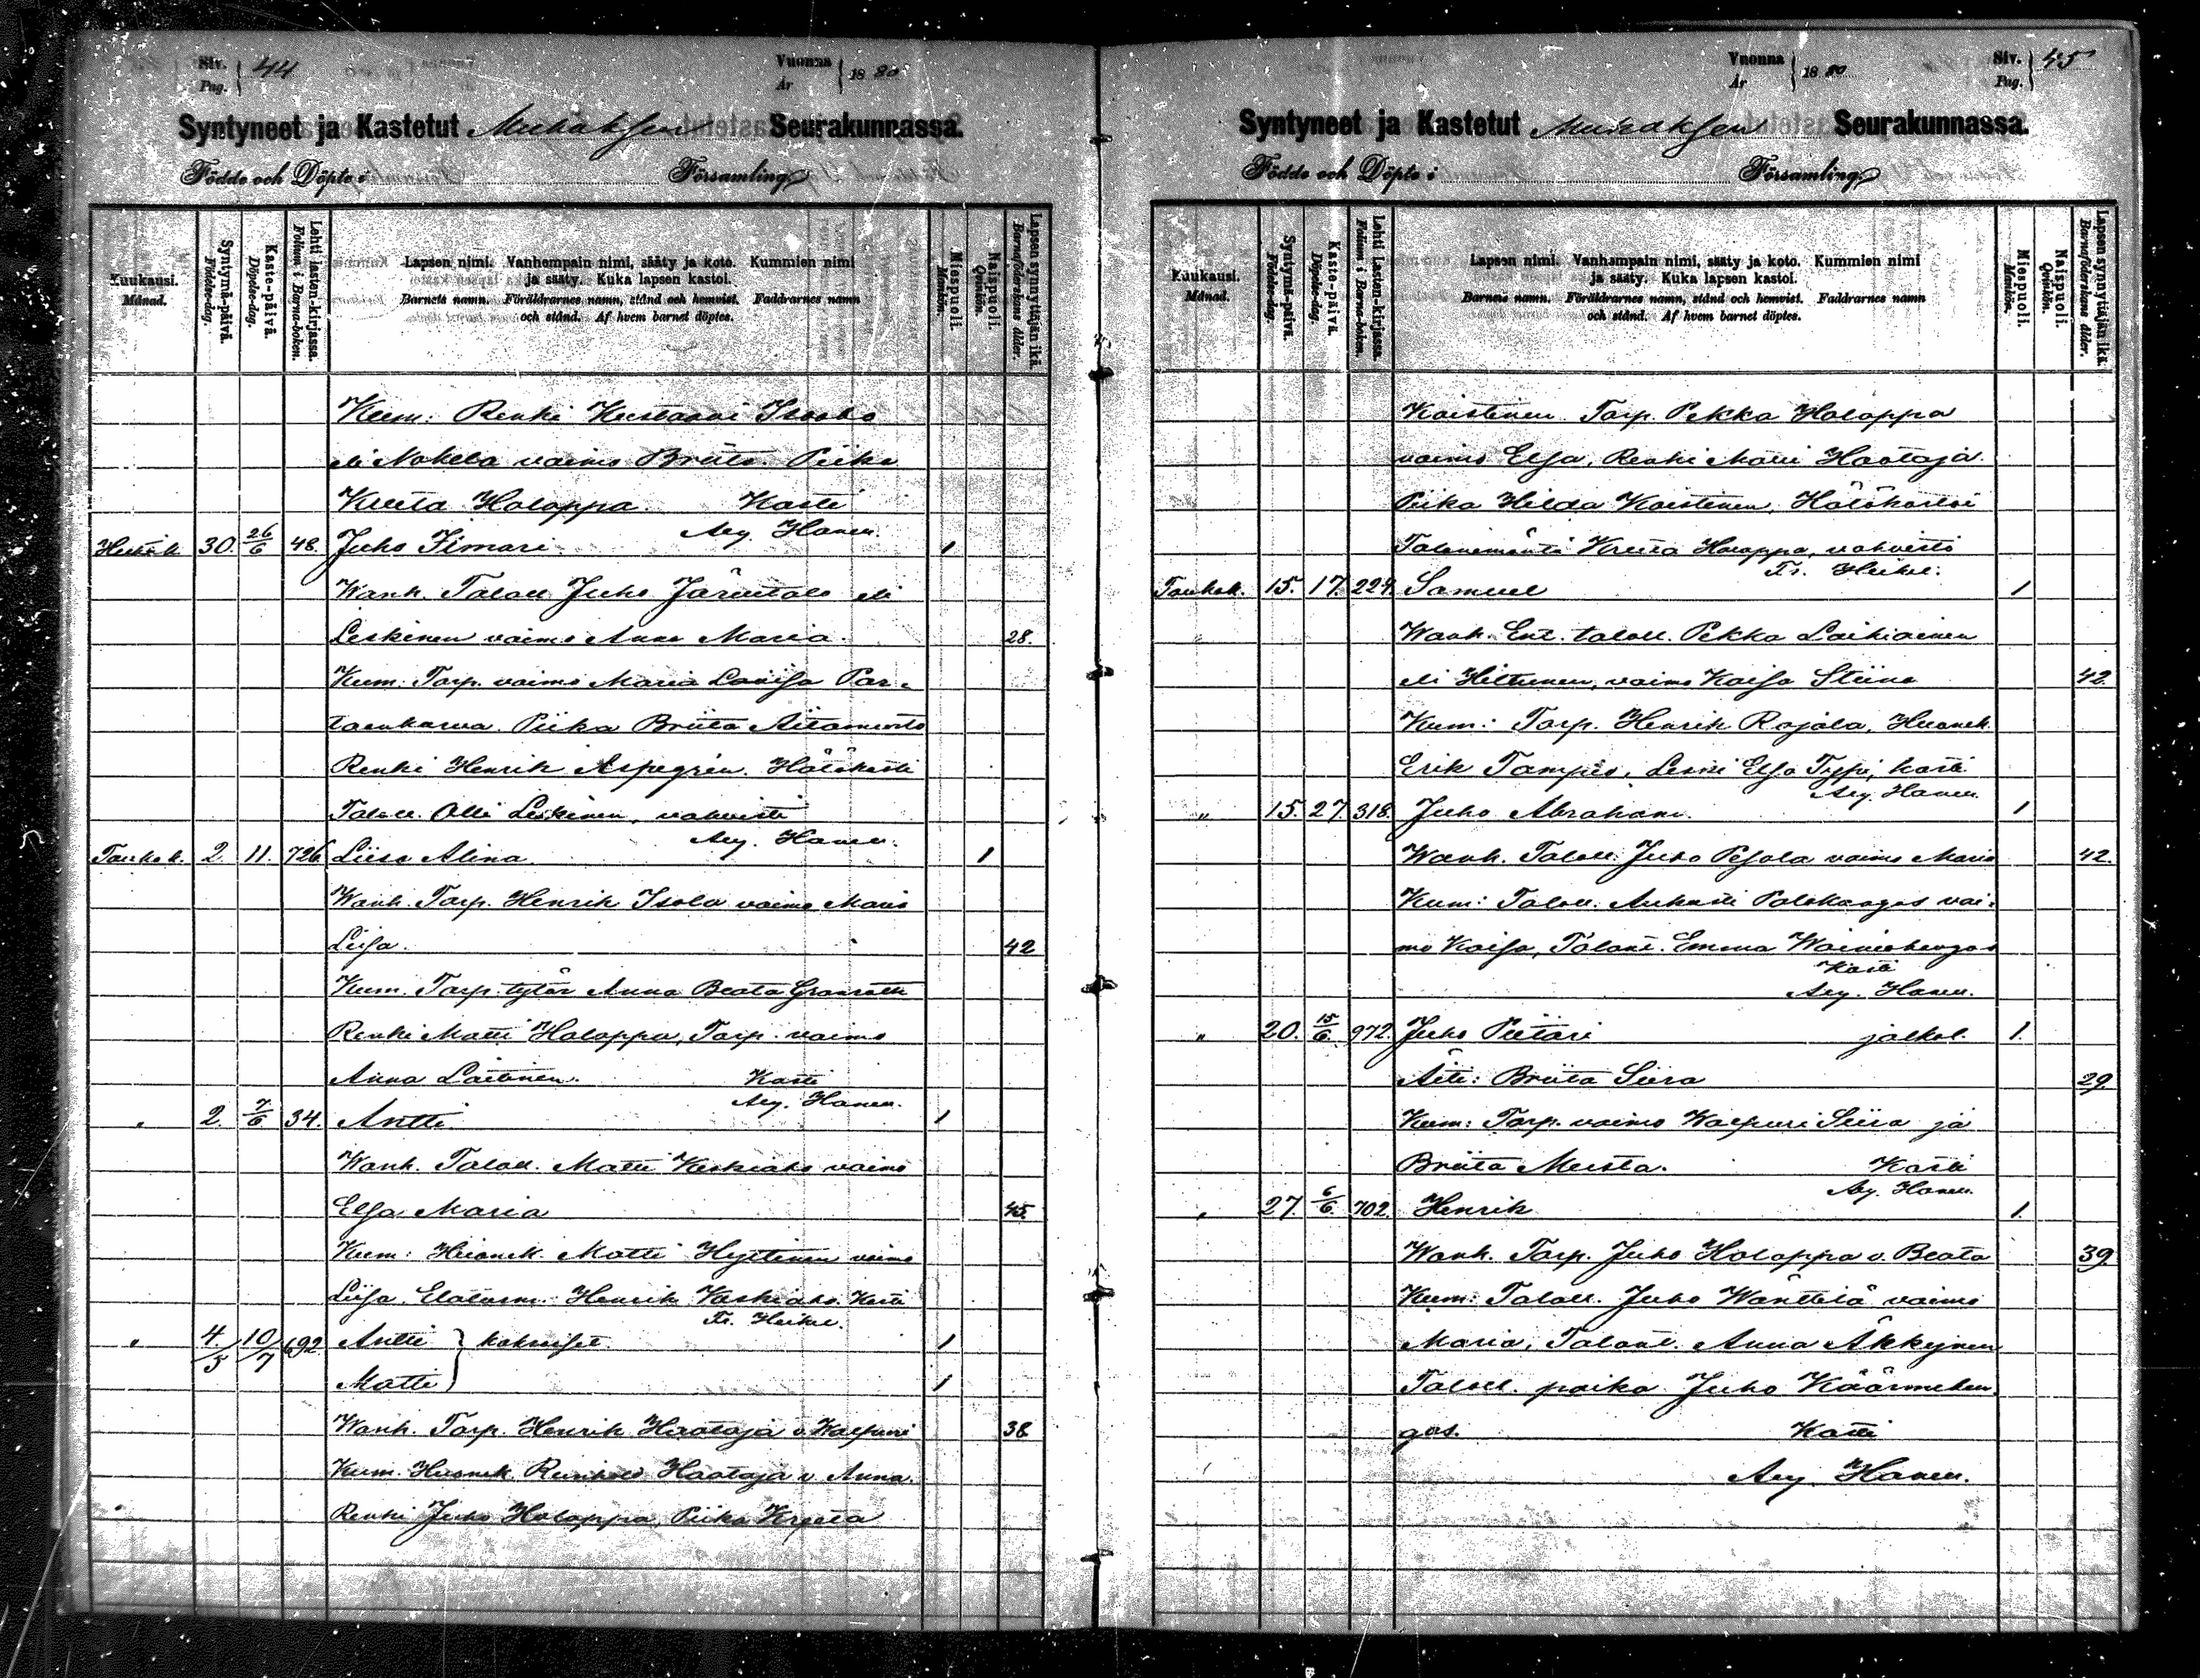 Siv. Pag. 44
Vuonna År 1880
Syntyneet ja Kastetut Muhoksen Seurakunnassa.
Födde och Döpte i Församling
Kuukausi. Månad.
Syntymä-päivä. Födelse-dag.
Kaste-päivä. Döpelse-dag.
Lehti lasten-kirjassa. Folium i Barna-boken.
Lapsen nimi. Vanhempain nimi, sääty ja koto. Kummien nimi
ja sääty. Kuka lapsen kastoi.
Barnets namn. Föräldrarnes namn, stånd och hemvist. Faddrarnes namn
och stånd. Af hvem barnet döptes.
Miespuoli. Mankön.
Naispuoli. Qvinkön.
Lapsen synnyttäjän ikä. Barnaföderskans ålder.
Kum: Renki Kustaavi Isoaho
eli Nokela vaimo Briita. Piika
Kreeta Holappa. Kasti
Aug. Hanen.
Huhtik. 30. 26/6 48. Juho Iimari 1
Wanh. Taloll. Juho Järvitalo eli
Leskinen vaimo Anna Maria. 28.
Kum: Torp. vaimo Maria Lovisa Par-
taenkarva. Piika Briita Aitamurto
Renki Henrik Aspegren. Hätäkasti
Taloll. Olli Leskinen, vahvisti
Aug. Hanen.
Toukok. 2. 11. 726. Liisa Alina. 1
Wanh. Torp. Henrik Isola vaimo Maria
Liisa. 42
Kum. Torp. tytär Anna Beata Granroth
Renki Matti Holappa, Torp. vaimo
Anna Laitinen. Kasti
Aug. Hanen.
" 2. 7/6 34. Antti. 1
Wanh. Taloll. Matti Keskiaho vaimo
Elsa Maria 45.
Kum: Huonek. Matti Hyttinen vaimo
Liisa. Henrik Keskiaho. Kasti
Fr. Heikel.
" 4/5 10/7 692 Antti } kaksoiset. 1
Matti } 1
Wanh. Torp. Henrik Haataja v. Walpuri 38
Kum. Huonek. Reinhold Haataja v. Anna.
Renki Juho Holappa, Piika Kreeta
Vuonna År 1880
Siv. Pag. 45
Syntyneet ja Kastetut Muhoksen Seurakunnassa.
Födde och Döpte i Församling
Kuukausi. Månad.
Syntymä-päivä. Födelse-dag.
Kaste-päivä. Döpelse-dag.
Lehti lasten-kirjassa. Folium i Barna-boken.
Lapsen nimi. Vanhempain nimi, sääty ja koto. Kummien nimi
ja sääty. Kuka lapsen kastoi.
Barnets namn. Föräldrarnes namn, stånd och hemvist. Faddrarnes namn
och stånd. Af hvem barnet döptes.
Miespuoli. Mankön.
Naispuoli. Qvinkön.
Lapsen synnyttäjän ikä. Barnaföderskans ålder.
Koistinen. Torp. Pekka Holappa
vaimo Elsa, Renki Matti Haataja.
Piika Hilda Koistinen, Hätäkastoi
Talonemäntä Kreeta Holappa, vahvisti
Fr. Heikel.
Toukok. 15. 17. 224. Samuel 1
Wanh. Ent. taloll. Pekka Laikiainen
eli Hiltunen, vaimo Kaisa Stiina 42.
Kum: Torp. Henrik Rajala, Huonek.
Erik Tampio, Leski Elsa Typpi, kasti
Aug. Hanen.
" 15. 27. 318. Juho Abraham. 1
Wanh. Taloll. Juho Pesola vaimo Maria 42.
Kum: Taloll. Antti Palokangas vai-
mo Kaisa, Talont. Emma Wainiokangas
Kasti
Aug. Hanen.
" 20. 15/6 972. Juho Pietari jalkal. 1.
Äiti: Briita Siira 29.
Kum: Torp. vaimo Walpuri Siira ja
Briita Musta. Kasti
Aug. Hanen.
" 27. 6/6 702. Henrik 1.
Wanh. Torp. Juho Holappa v. Beata 39.
Kum: Taloll. Juho Wänttilä vaimo
Maria, Talont. Anna Äkkijnen
Taloll. poika Juho Käärmeken-
gas. Kasti
Aug. Hanen.